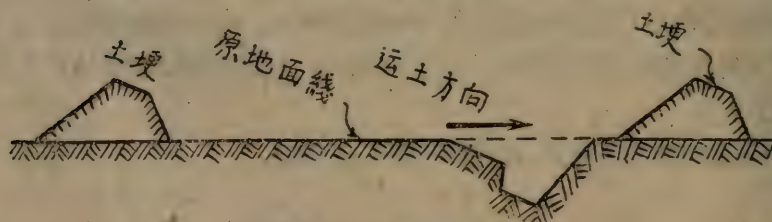 土埂
原地面綫
运土方向
土埂